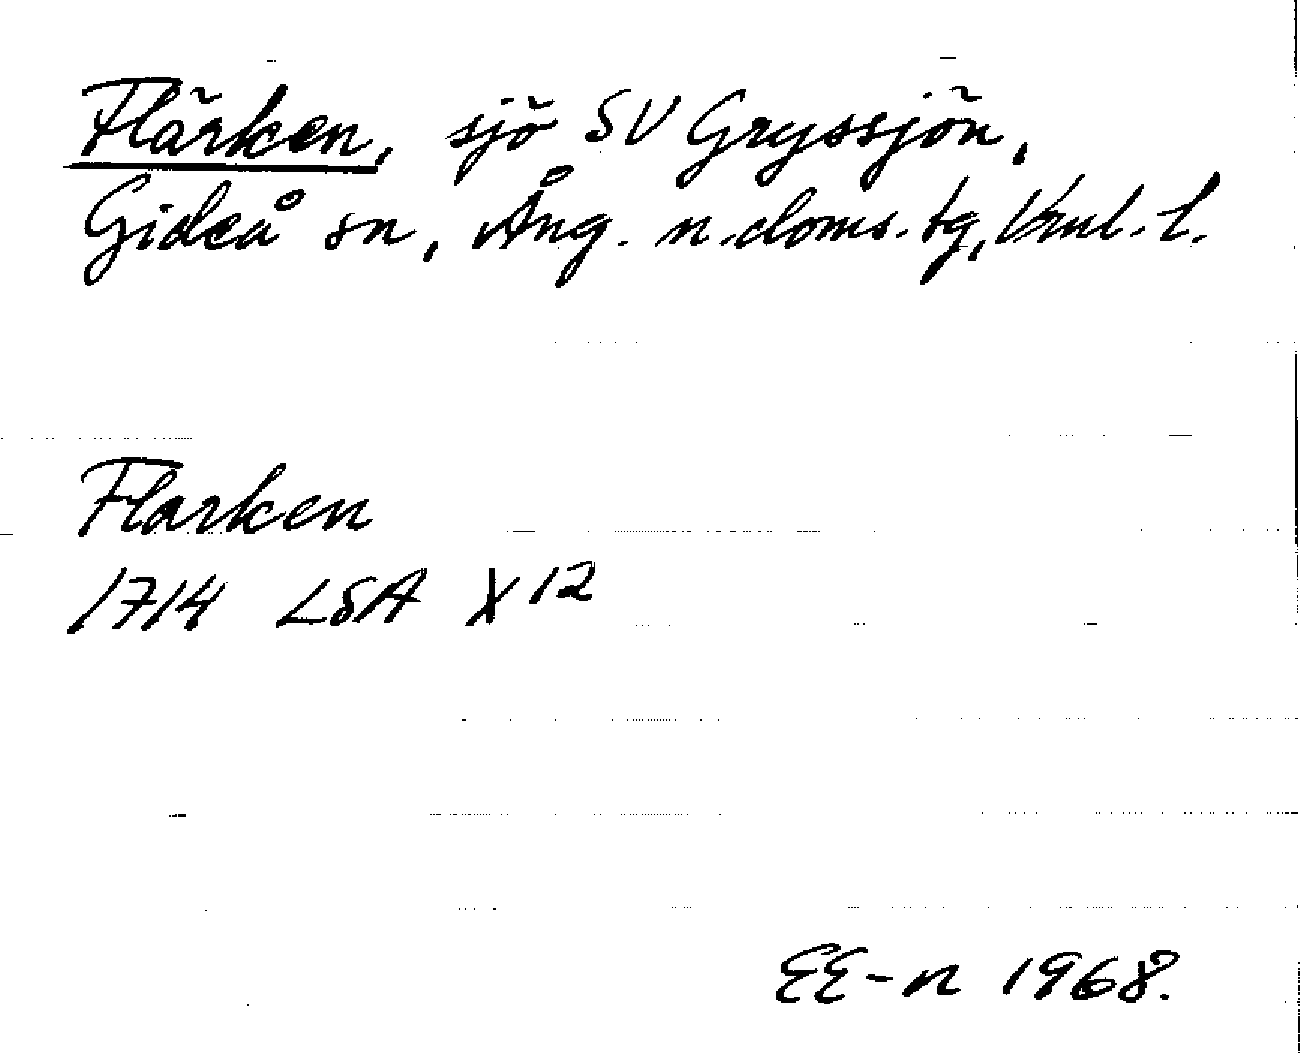 Flärken, sjö SV Gryssjön,
Gideå sn, Ång. n. doms. tg, Vnl. l.
Flarken
1714 LSA X12
EE-n 1968.